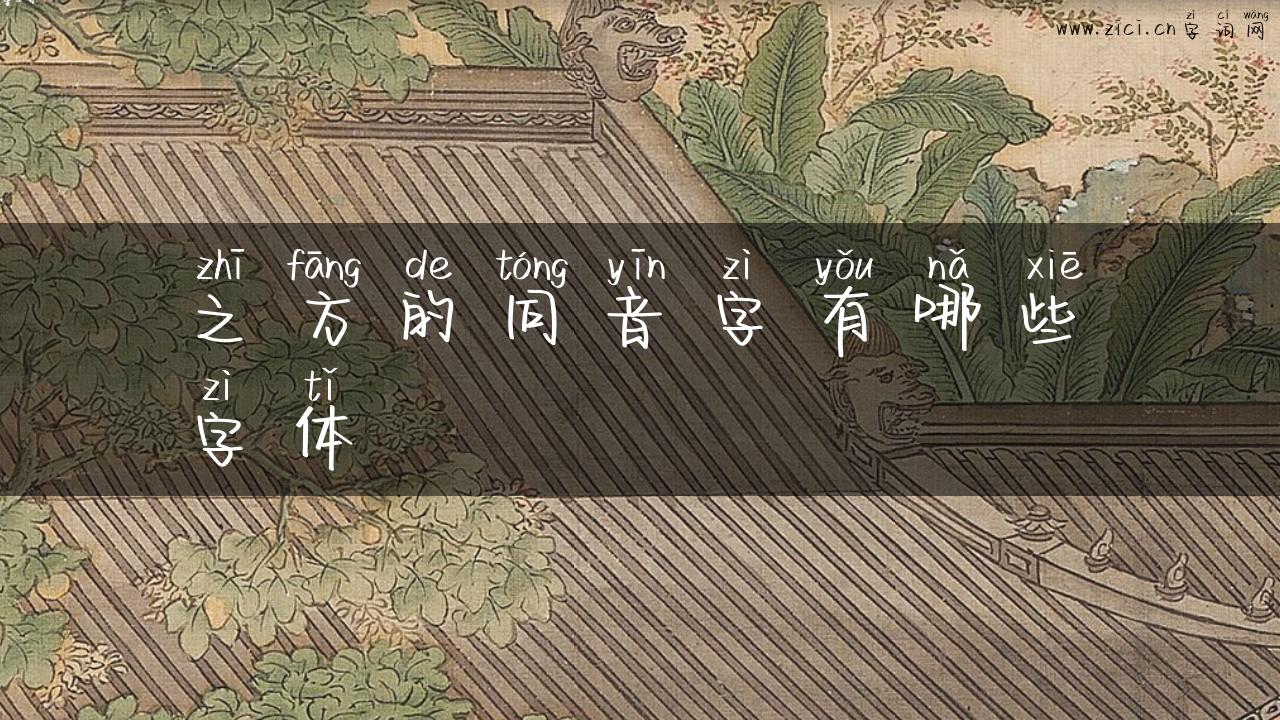 zì cí wǎng
www.zici.cn 字词网
zhī fāng de tóng yīn zì yǒu nǎ xiē
之方的同音字有哪些
zì tǐ
字体